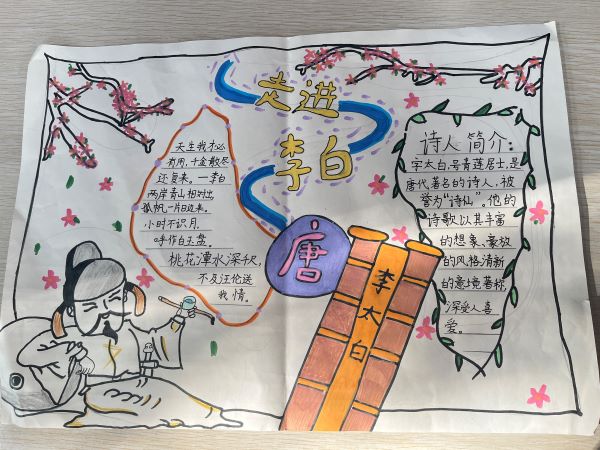 走进
李白
天生我才必
有用,千金散尽
还复来。一李白
两岸青山相对出,
孤帆一片日边来。
小时不识月,
呼作白玉盘。
桃花潭水深千尺,
不及汪伦送
我情。
唐
李太白
诗人简介:
字太白,号青莲居士,是
唐代著名的诗人,被
誉为“诗仙”。他的
诗歌以其丰富
的想象、豪放
的风格清新
的意境著称,
深受人喜
爱。